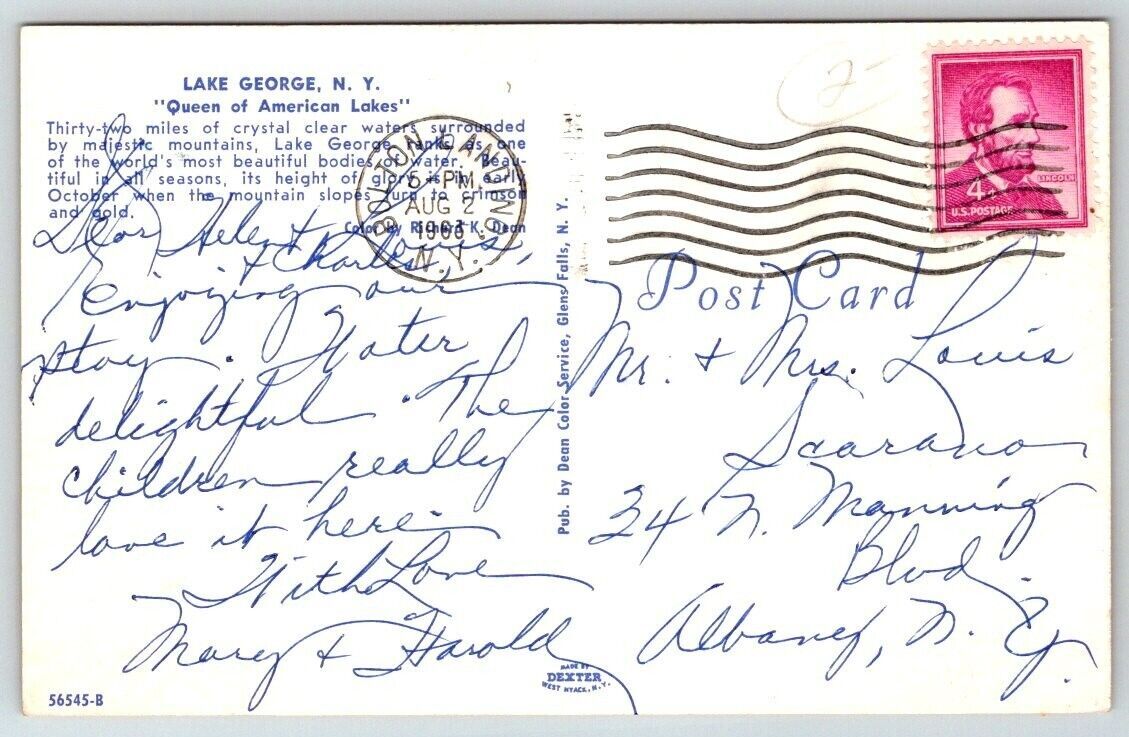 LAKE GEORGE, N. Y.
"Queen of American Lakes"
Thirty-two miles of crystal clear waters surrounded
by majestic mountains, Lake George ranks as one
of the world's most beautiful bodies of water. Beau-
tiful in all seasons, its height of glory is in early
October when the mountain slopes turn to crimson
and gold.
Color by Richard K. Dean
BOLTON LANDING
5 - PM
AUG 2
1963
N.Y.
Dear Helen & Louis,
& Charles,
Enjoying our
stay. Water
delightful. The
children really
love it here.
With Love
Mary & Harold
56545-B
Pub. by Dean Color Service, Glens Falls, N. Y.
MADE BY
DEXTER
WEST NYACK, N. Y.
2-
LINCOLN
4¢
U.S. POSTAGE
Post Card
Mr. & Mrs. Louis
Scarano
34 N. Manning
Blvd.
Albany, N. Y.